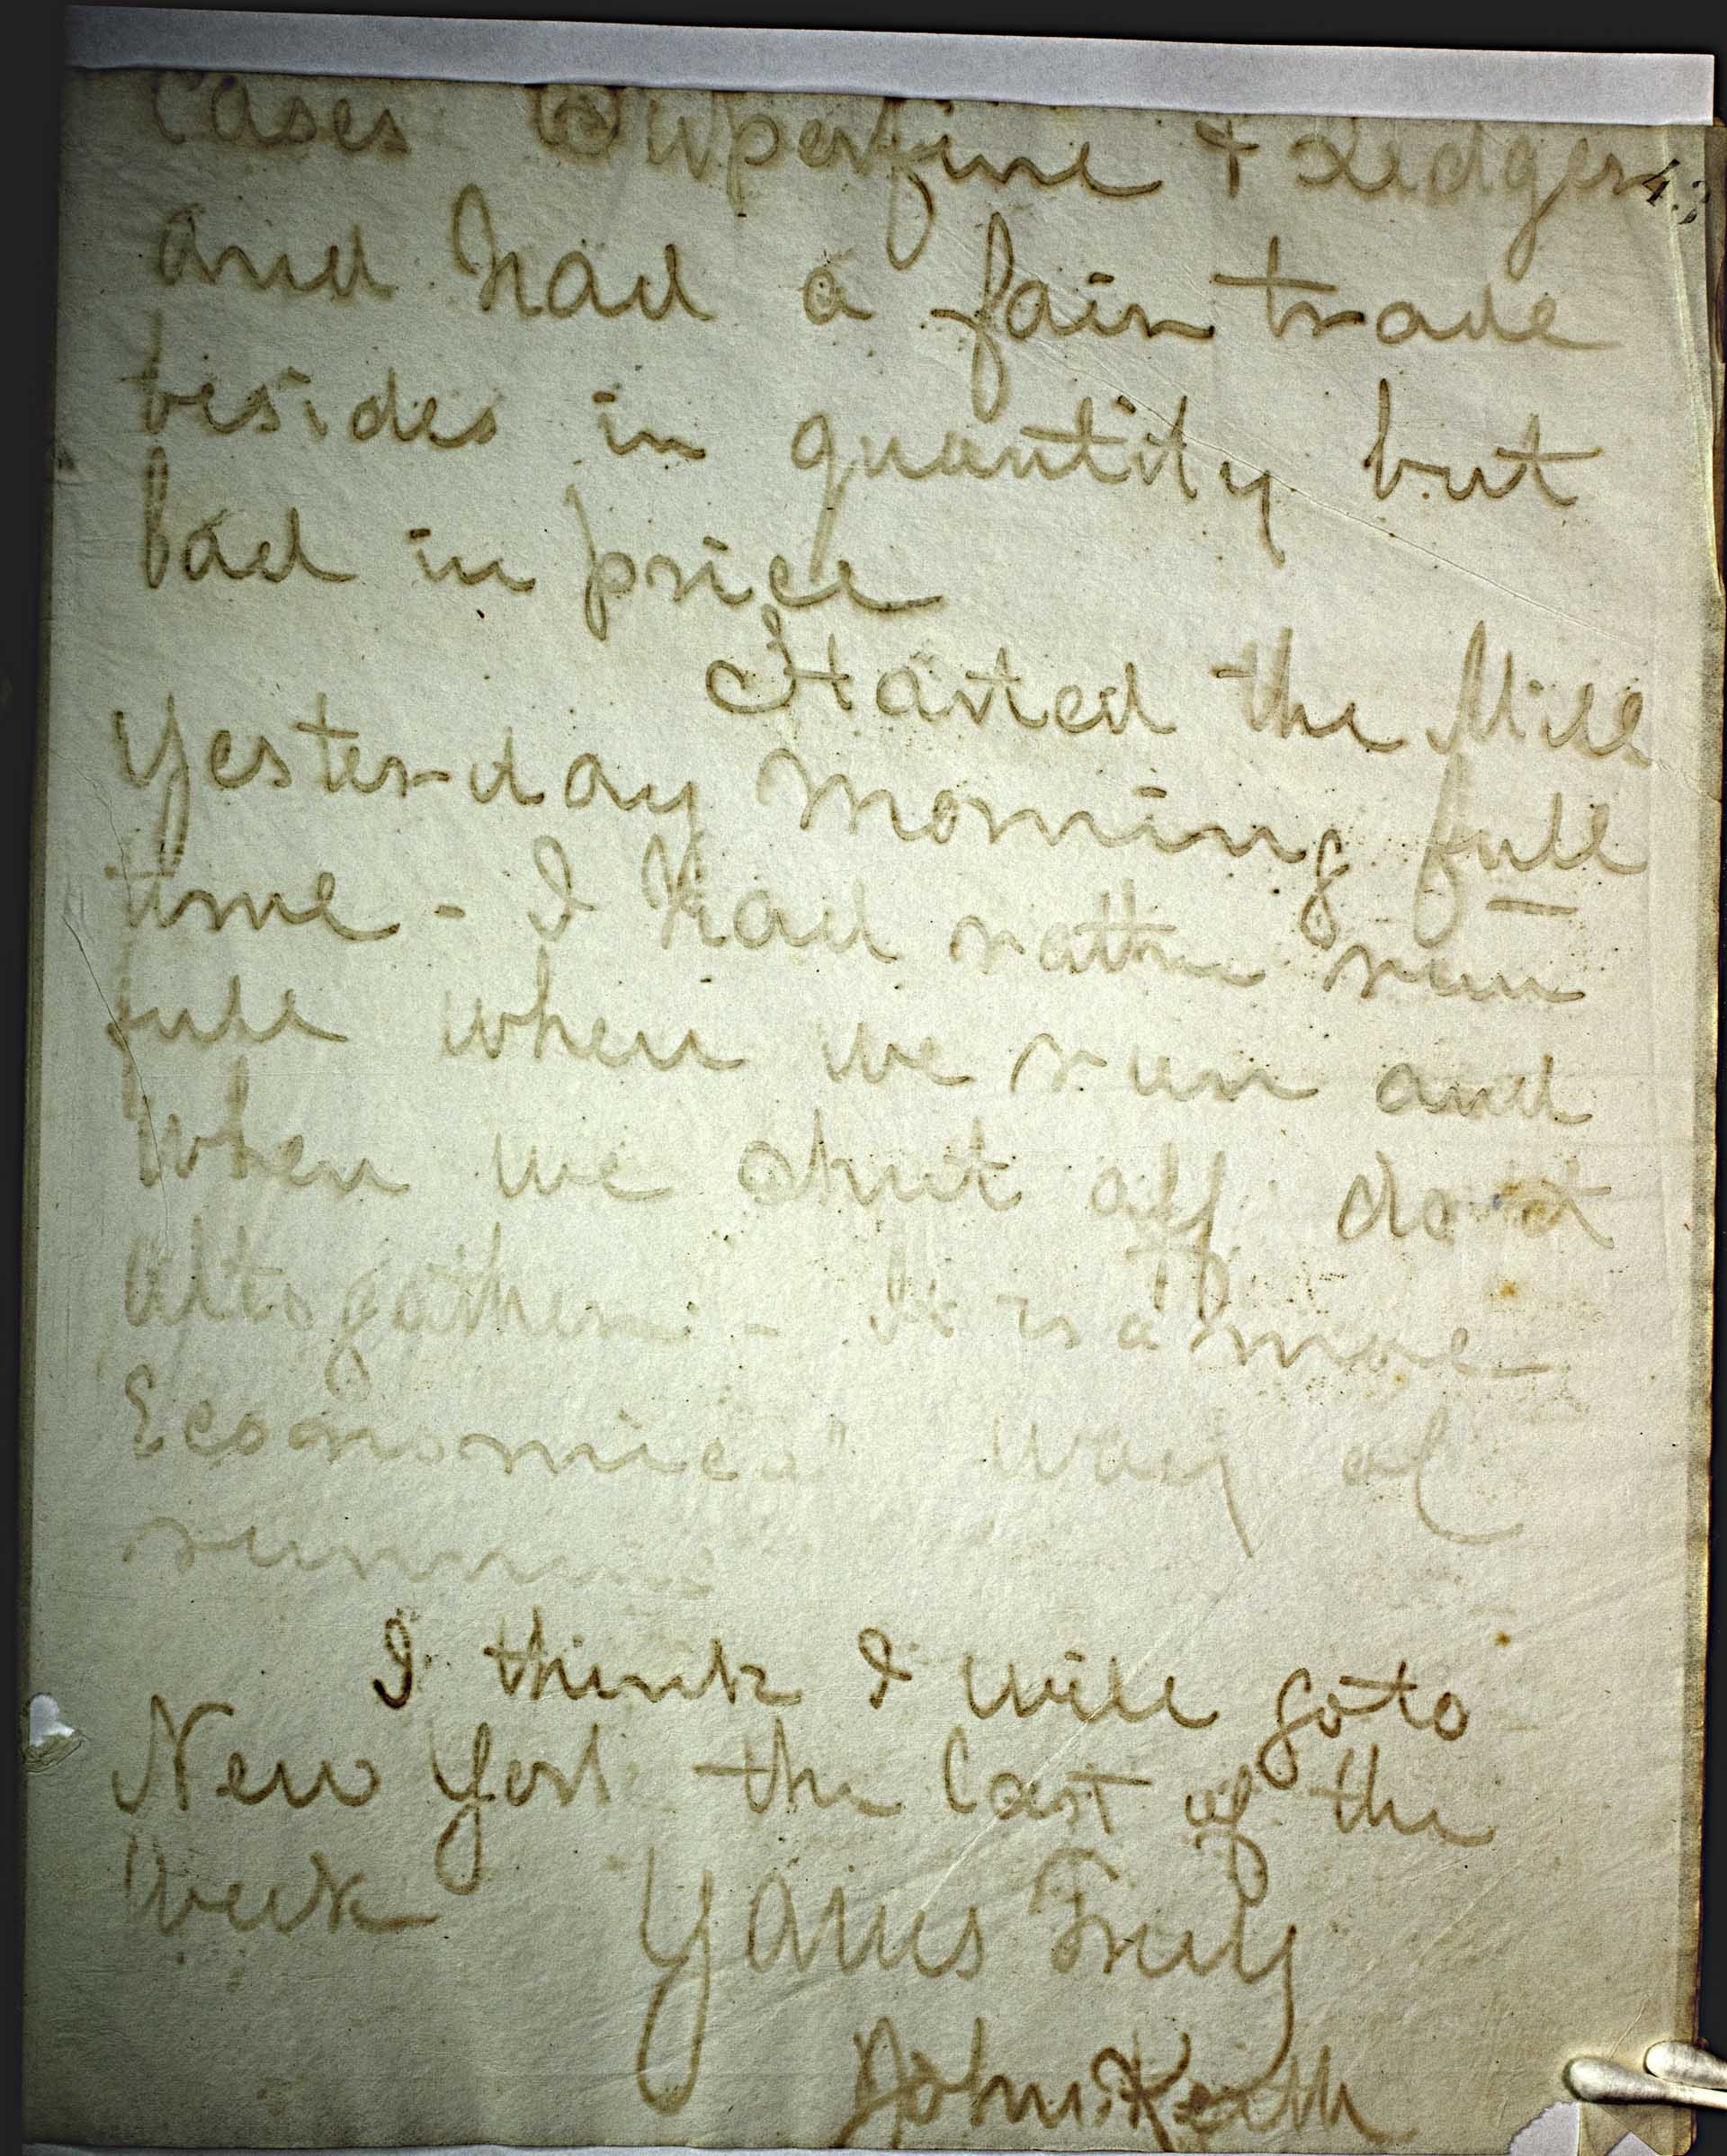 Cases Superfine + Ledger
and had a fair trade
besides in quantity but
bad in price
Started the Mill
yesterday morning full
time - I had rather run
full when we run and
when we shut off do it
altogether - It is a more
Economical way of
running
I think I will go to
New York the last of the
Week Yours Truly
John Keith